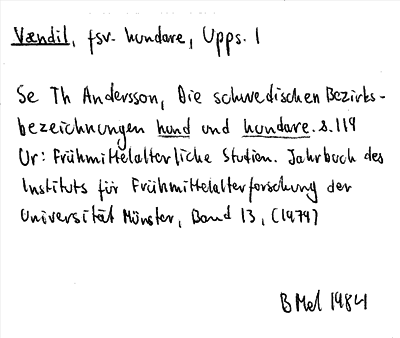 Vændil, fsv. hundare, Upps. l
Se Th Andersson, Die schwedischen Bezirks-
bezeichnungen hund und hundare. s. 119
Ur: Frühmittelalterliche Studien. Jahrbuch des
Instituts für Frühmittelalterforschung der
Universität Münster, Band 13, (1979)
B Mel 1984